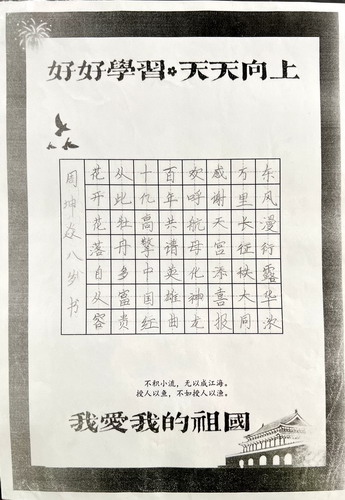 好好學習·天天向上
东风漫衍露华浓
万里长征秩大同
感谢天宫添喜报
欢呼航母化神龙
百年共谱英雄曲
十亿高擎中国红
从此牡丹多富贵
花开花落自从容
周坤 八岁书
不积小流，无以成江海。
授人以鱼，不如授人以渔。
我愛我的祖國